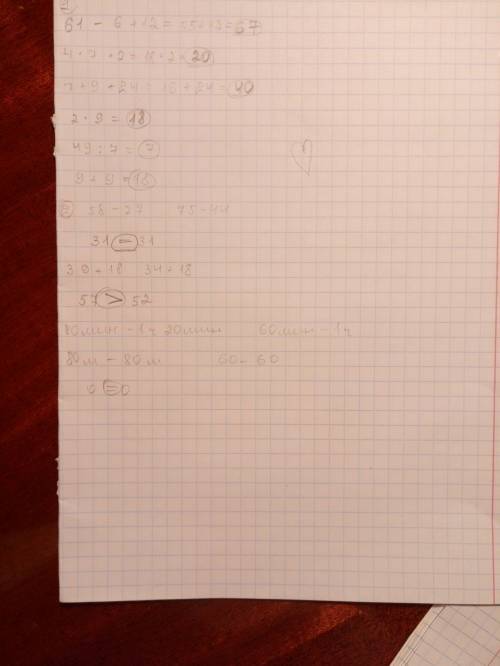 61 - 6 + 12 = 55+12=67
4 · 7 + 2 = 18 + 2 = 20
7 + 9 + 24 = 16 + 24 = 40
2 · 9 = 18
49 : 7 = 7
9 + 9 = 18
58 - 27 75 - 44
31 = 31
39 + 18 34 + 18
57 > 52
80мин - 1ч 20мин 60мин - 1ч
80м - 80м 60 - 60
0 = 0